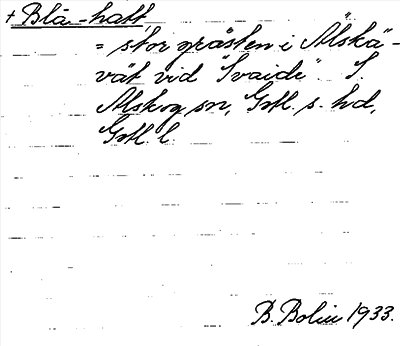 + Blå-hatt,
= stor gråsten i Älskä-
vät vid "Svaide". S.
Alskog sn, Gotl. s. hd,
Gotl. l.
B. Bolin 1933.